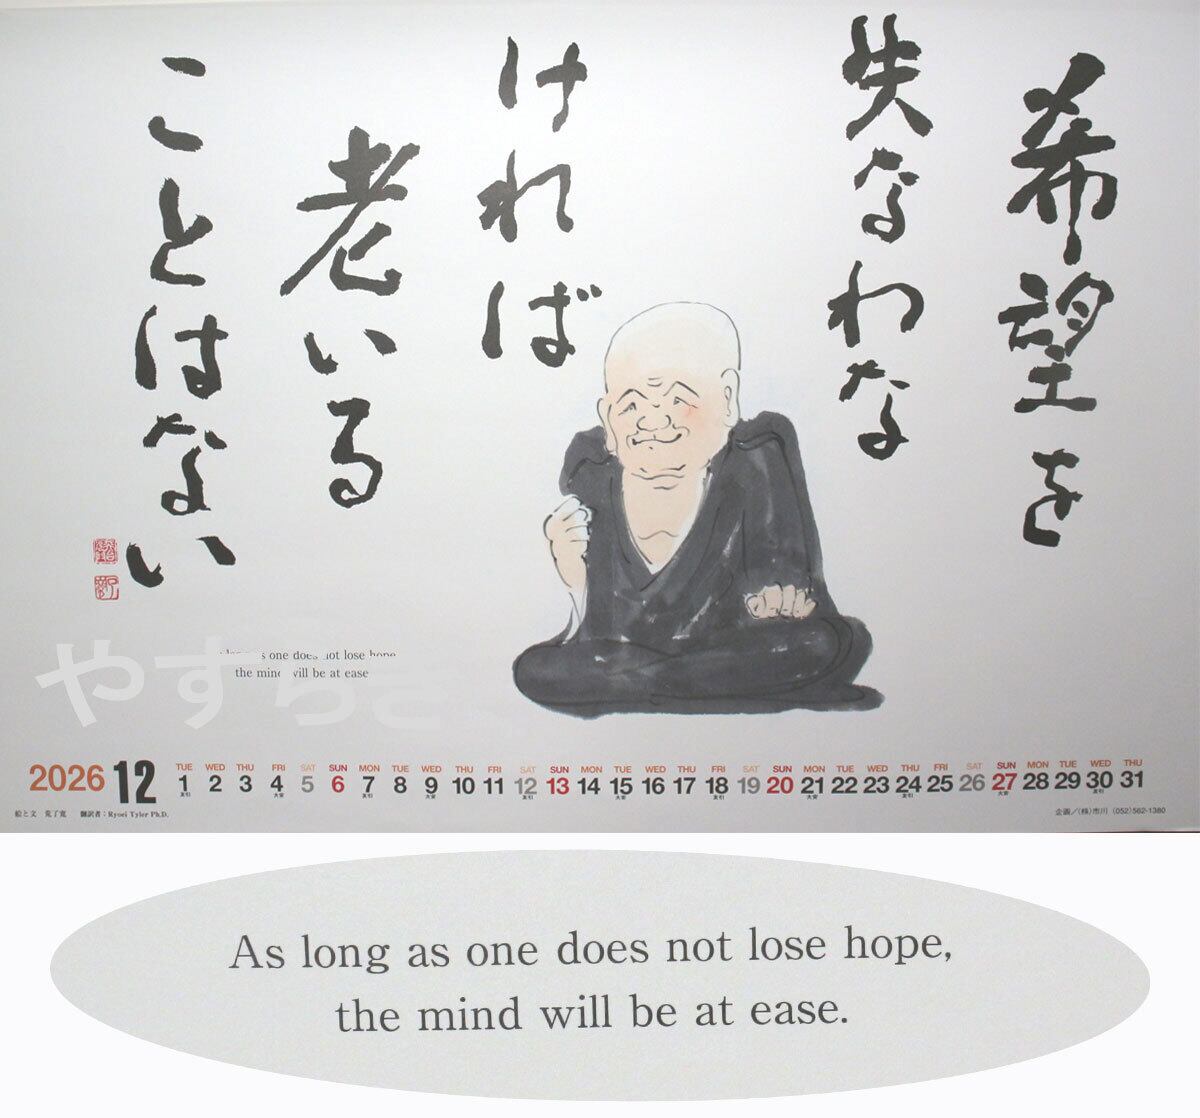 希望を
失なわな
ければ
老いる
ことはない
as one does not lose hope
the mind will be at ease
やすらぎ
2026 12
TUE WED THU FRI SAT SUN MON TUE WED THU FRI SAT SUN MON TUE WED THU FRI SAT SUN MON TUE WED THU FRI SAT SUN MON TUE WED THU
1 2 3 4 5 6 7 8 9 10 11 12 13 14 15 16 17 18 19 20 21 22 23 24 25 26 27 28 29 30 31
友引 大安 友引 大安 友引 大安 友引 大安 友引 大安 友引
絵と文 荒了寛 翻訳者:Ryoei Tyler Ph.D.
企画/(株)市川 (052)562-1380
As long as one does not lose hope,
the mind will be at ease.